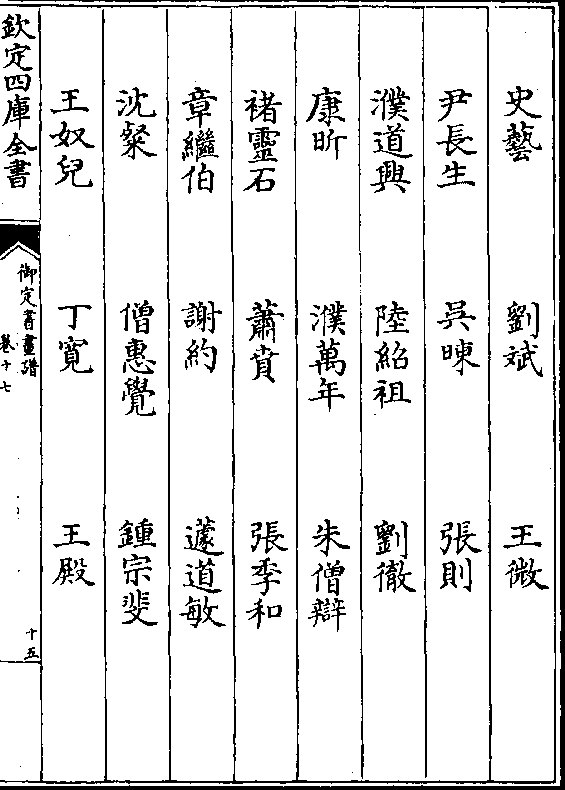 史藝 劉斌 王微
尹長生 吳暕 張則
濮道興 陸紹祖 劉徹
康昕 濮萬年 朱僧辯
褚靈石 蕭賁 張季和
章繼伯 謝約 蘧道敏
沈粲 僧惠覺 鍾宗斐
王奴兒 丁寬 王殿
欽定四庫全書
御定書畫譜
卷十七
十五